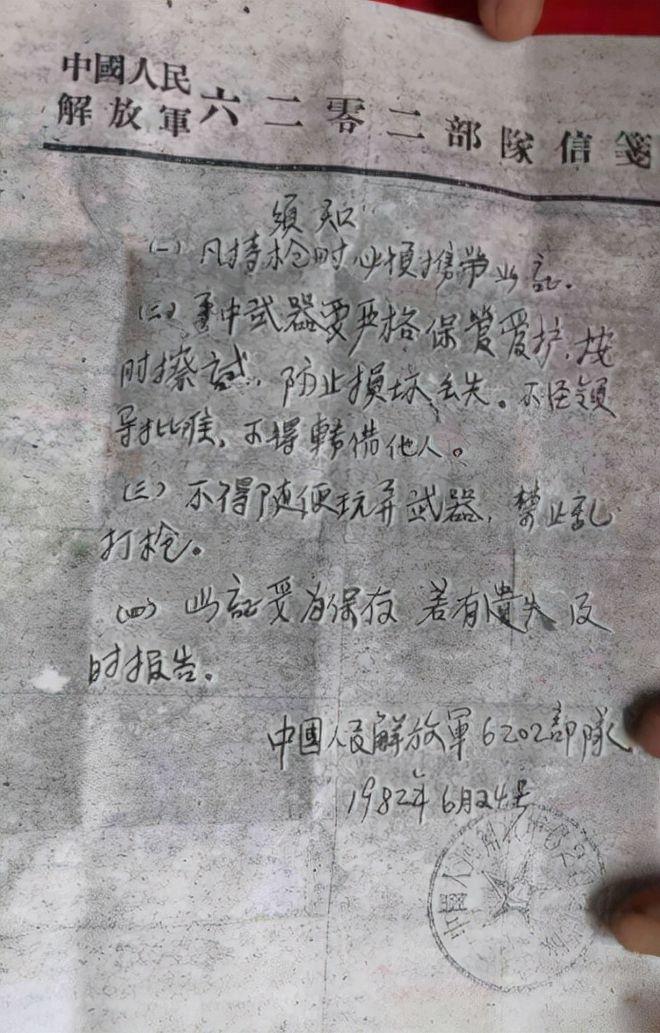 中國人民
解放軍六二零二部隊信箋
須知
(一) 凡持枪时必須携带此証.
(二) 手中武器要严格保管爱护, 按
时擦試, 防止損坏丢失。不经領
导批准, 不得轉借他人。
(三) 不得随便玩弄武器, 禁止乱
打枪。
(四) 此証妥为保存 若有遺失 及
时报告。
中國人民解放軍6202部隊
1982年6月24号